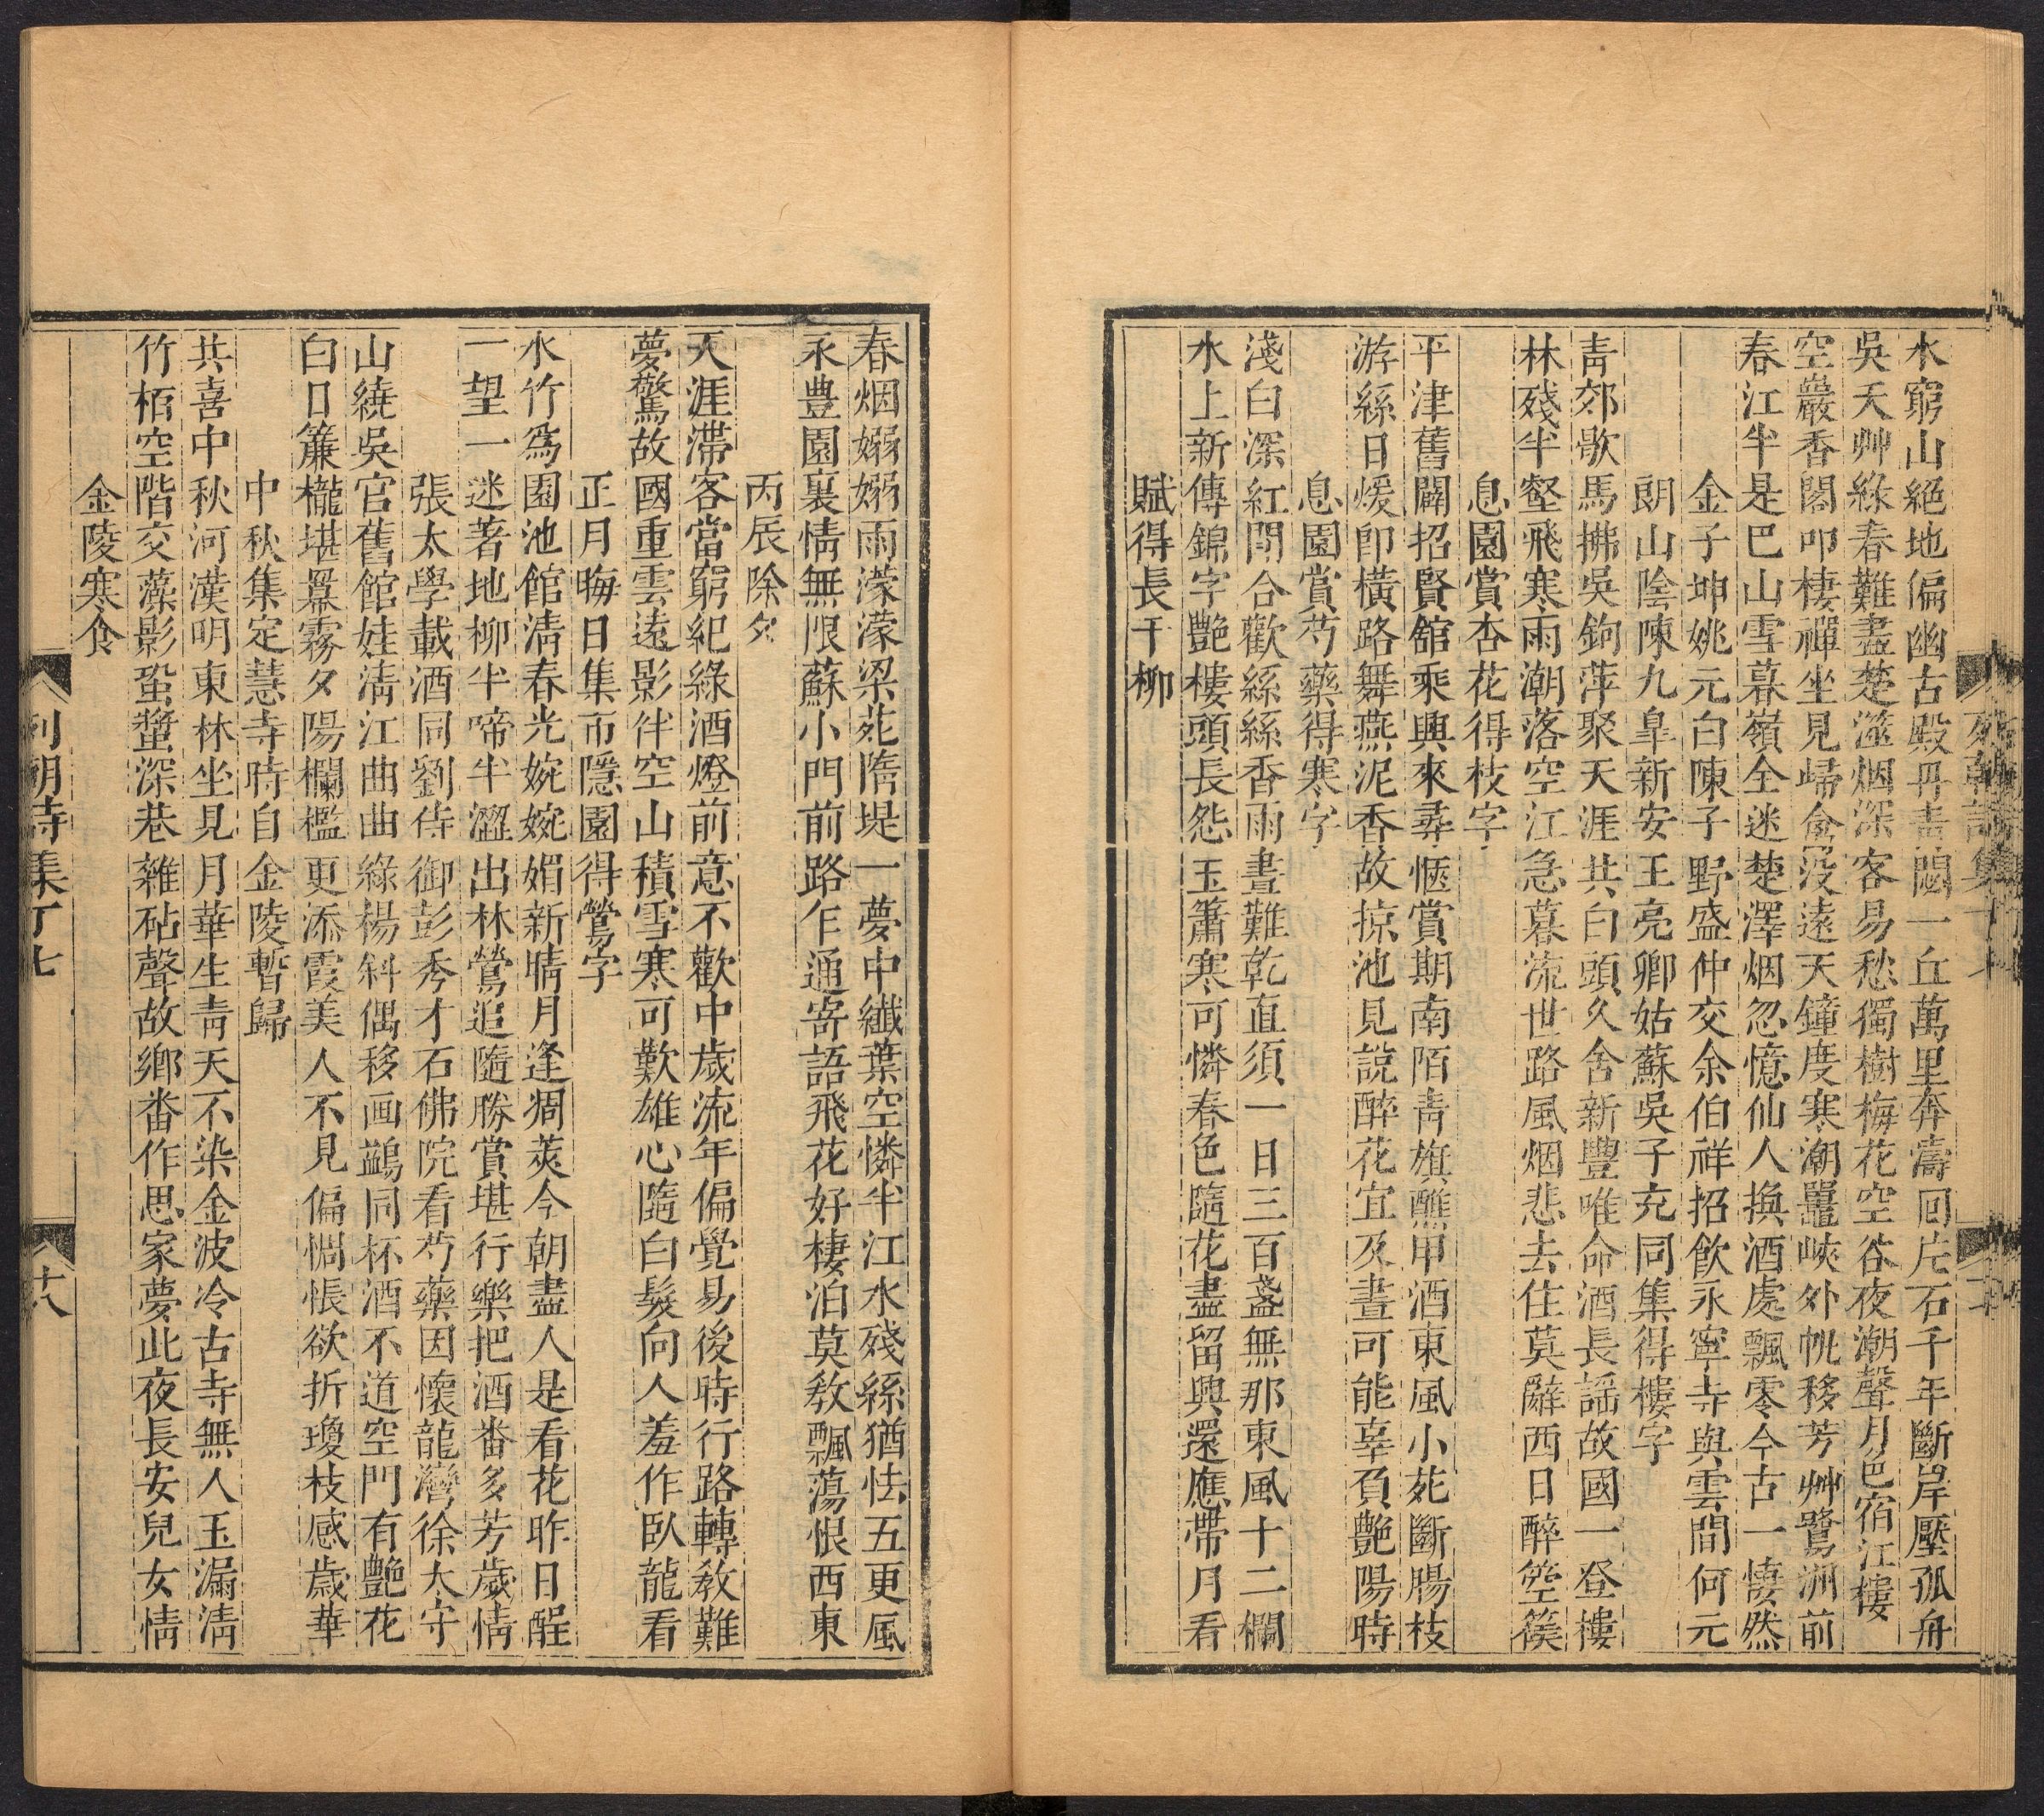 水窮山絕地偏幽古殿丹青閟一丘萬里奔濤回片石千年斷岸壓孤舟
吳天艸綠春難盡楚澨烟深客易愁獨樹梅花空谷夜潮聲月色宿江樓
空巖香閣叩棲禪坐見歸禽沒遠天鐘度寒潮鼉峽外帆移芳艸鷺洲前
春江半是巴山雪暮嶺全迷楚澤烟忽憶仙人換酒處飄零今古一悽然
金子坤姚元白陳子野盛仲交余伯祥招飲永寧寺與雲間何元
朗山陰陳九皐新安王亮卿姑蘇吳子充同集得樓字
靑郊歌馬拂吳鉤萍聚天涯共白頭久舍新豐唯命酒長謡故國一登樓
林殘半壑飛寒雨潮落空江急暮流世路風烟悲去住莫辭西日醉箜篌
息園賞杏花得枝字
平津舊闢招賢舘乘興來尋愜賞期南陌靑旗醮甲酒東風小苑斷腸枝
游絲日煖卽橫路舞燕泥香故掠池見說醉花宜及晝可能辜負艷陽時
息園賞芍藥得寒字
淺白深紅間合歡絲絲香雨晝難乾直須一日三百盞無那東風十二欄
水上新傳錦字艷樓頭長怨玉簫寒可憐春色隨花盡留興還應帶月看
賦得長干柳
春烟嫋嫋雨濛濛梁苑隋堤一夢中纖葉空憐半江水殘絲猶怯五更風
永豊園裏情無限蘇小門前路乍通寄語飛花好棲泊莫敎飄蕩恨西東
丙辰除夕
天涯滯客當窮紀綠酒燈前意不歡中歲流年偏覺易後時行路轉敎難
夢驚故國重雲遠影伴空山積雪寒可歎雄心隨白髮向人羞作臥龍看
正月晦日集市隱園得鶯字
水竹爲園池館淸春光婉婉媚新晴月逢凋莢今朝盡人是看花昨日酲
一望一迷著地柳半啼半澀出林鶯追隨勝賞堪行樂把酒畨多芳歲情
張太學載酒同劉侍御彭秀才石佛院看芍藥因懷龍灣徐太守
山繞吳宫舊館娃淸江曲曲綠楊斜偶移画鷁同杯酒不道空門有艷花
白日簾櫳堪羃霧夕陽欄檻更添霞美人不見偏惆悵欲折瓊枝感歲華
中秋集定慧寺時自金陵暫歸
共喜中秋河漢明東林坐見月華生靑天不染金波冷古寺無人玉漏淸
竹栢空階交藻影蛩螿深巷雜砧聲故鄉畨作思家夢此夜長安兒女情
金陵寒食
列朝詩集丁七
十八